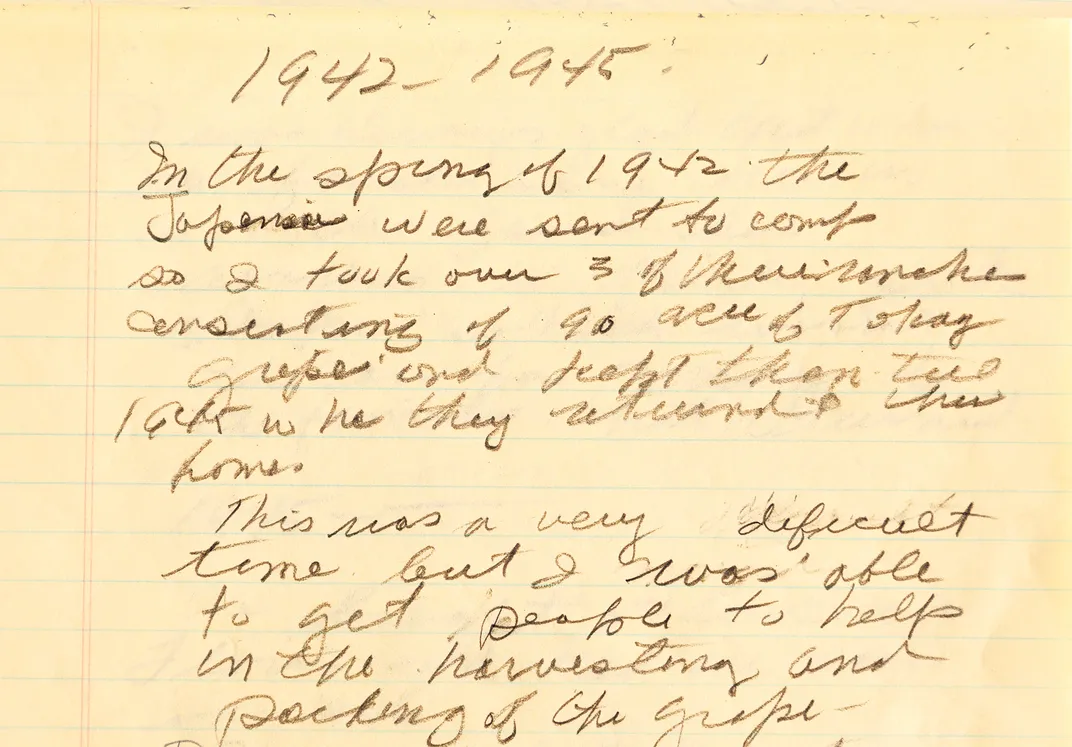 1942 - 1945.
In the spring of 1942 the
Japenese were sent to camp
so I took over 3 of their ranches
consisting of 90 acres of Tokay
grape and kept them till
1945 whe they returnd to their
homes
This was a very dificult
time but I was able
to get people to help
in the harvesting and
packing of the grape-